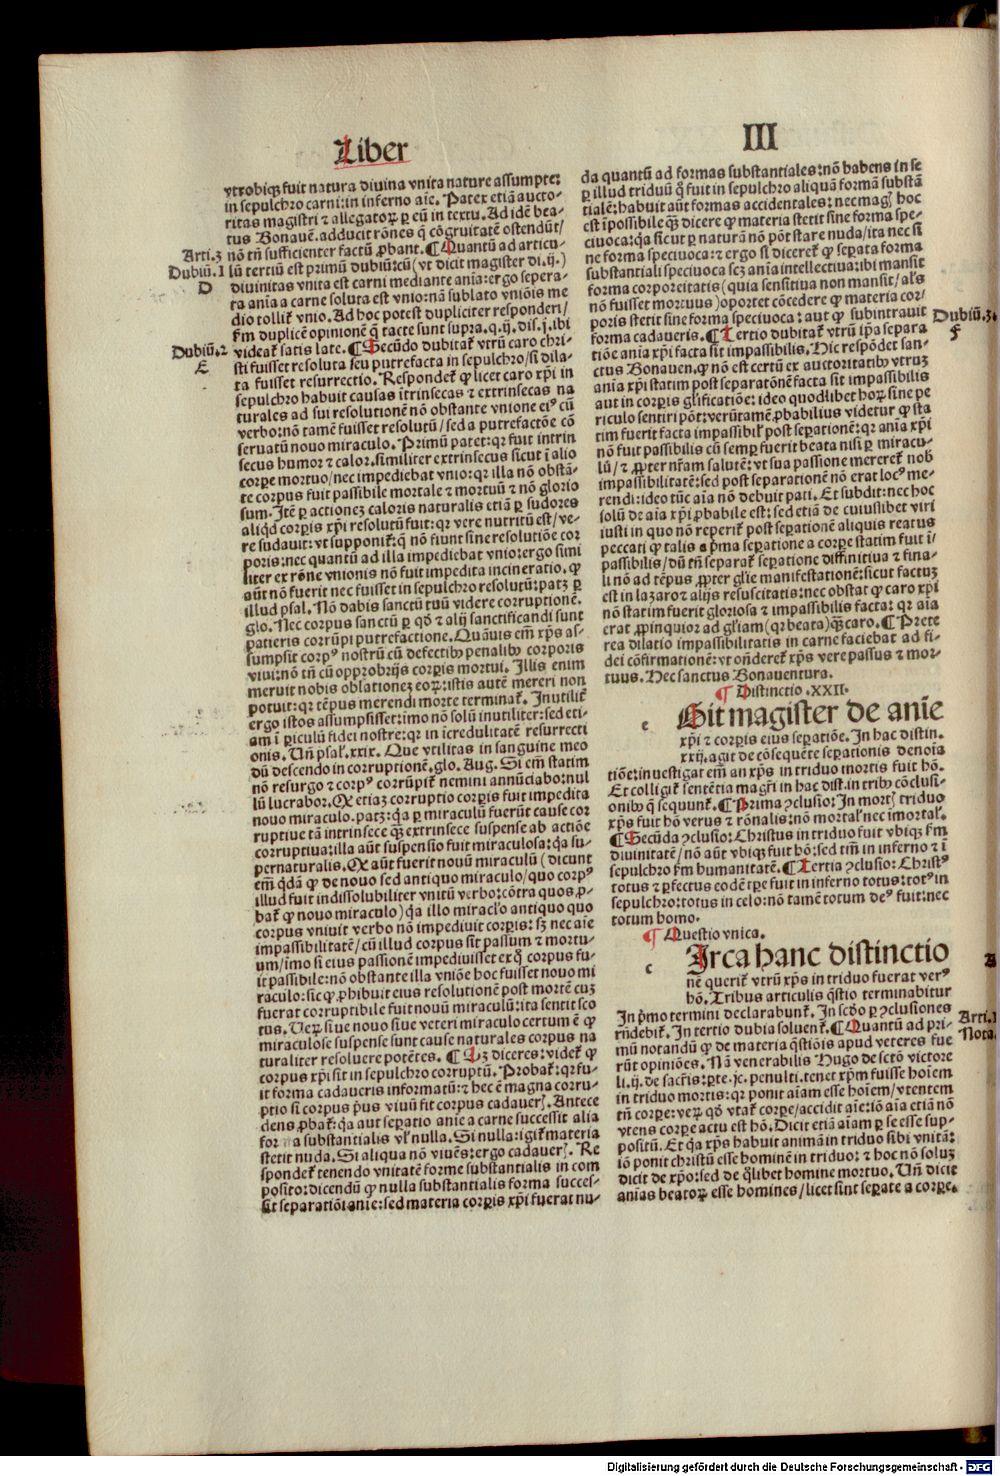 Liber
III
vtrobiqȝ fuit natura diuina vnita nature assumpte:
in sepulchro carni: in inferno aīe. Patex etiā aucto-
ritas magistri ⁊ allegatoꝝ ꝑ eū in textu. Ad idē bea-
tus Bonauē. adducit rōnes q̄ cōgruitatē ostendūt/
nō tn̄ sufficienter factū ꝓbant. ¶ Quantū ad articu-
lū tertiū est primū dubiū: cū (vt dicit magister di. ij.)
diuinitas vnita est carni mediante anīa: ergo sepera-
ta anīa a carne soluta est vnio: nā sublato vniōis me
dio tollit̄ vnio. Ad hoc potest dupliciter responderi/
ẜm duplicē opinionē q̄ tacte sunt supra. q. ij. dis. j. ibi
videat̄ satis late. ¶ Secūdo dubitat̄ vtrū caro chri-
sti fuisset resoluta seu putrefacta in sepulchro/ si dila-
ta fuisset resurrectio. Respondet̄ ꝙ licet caro xp̄i in
sepulchro habuit causas ītrinsecas ⁊ extrinsecas na
turales ad sui resolutionē nō obstante vnione eiꝰ cū
verbo: nō tamē fuisset resolutū/ sed a putrefactōe cō
seruatū nouo miraculo. Primū patet: qꝛ fuit intrin
secus humor ⁊ calor. similiter extrinsecus sicut ī alio
corꝑe mortuo/ nec impediebat vnio: qꝛ illa nō obstā-
te corpus fuit passibile mortale ⁊ mortuū ⁊ nō glorio
sum. Itē ꝑ actioneȝ caloris naturalis etiā ꝑ sudores
aliqd̄ corꝑis xp̄i resolutū fuit: qꝛ vere nutritū est/ ve-
re sudauit: vt supponit̄: q̄ nō fiunt sine resolutiōe cor
poris: nec quantū ad illa impediebat vnio: ergo simi
liter ex rōne vnionis nō fuit impedita incineratio. ꝙ
aūt nō fuerit nec fuisset in sepulchro resolutū: patȝ ꝑ
illud psal. Nō dabis sanctū tuū videre corruptionē.
glo. Nec corpus sanctū ꝑ qd̄ ⁊ alij sanctificandi sunt
patieris corrūpi putrefactione. Quāuis em̄ xp̄s as-
sumpsit corpꝰ nostrū cū defectibꝰ penalibꝰ corporis
viui: nō tn̄ cū opprobrijs corꝑis mortui. Illis enim
meruit nobis oblationeȝ eoꝝ: istis autē mereri non
potuit: qꝛ tēpus merendi morte terminat̄. Inutilit̄
ergo istos assumpsisset: imo nō solū inutiliter: sed eti-
am ī ꝑiculū fidei nostre: qꝛ in īcredulitatē resurrecti
onis. Vn̄ psal. xxix. Que vtilitas in sanguine meo
dū descendo in corruptionē. glo. Aug. Si em̄ statim
nō resurgo ⁊ corpꝰ corrūpit̄ nemini annūciabo: nul
lū lucrabor. Qꝙ etiaȝ corruptio corꝑis fuit impedita
nouo miraculo. patȝ: q̄a ꝑ miraculū fuerūt cause cor
ruptiue tā intrinsece qȝ̄ extrinsece suspense ab actiōe
corruptiua: illa aūt suspensio fuit miraculosa: q̄a su-
pernaturalis. Qꝙ aūt fuerit nouū miraculū (dicunt
em̄ q̄dā ꝙ de nouo sed antiquo miraculo/ quo corpꝰ
illud fuit indissolubiliter vnitū verbo: cōtra quos ꝓ-
bat̄ ꝙ nouo miraculo) q̄a illo miracl'o antiquo quo
corpus vniuit verbo nō impediuit corꝑis: sȝ nec aīe
impassibilitatē/ cū illud corpus sit passum ⁊ mortu-
um/ imo si eius passionē impediuisset exq̄ corpus fu-
it passibile: nō obstante illa vniōe hoc fuisset nouo mi
raculo: sic ꝙ ꝓhibuit eius resolutionē post mortē cuȝ
fuerat corruptibile fuit nouū miraculū: ita sentit sco
tus. Veꝝ siue nouo siue veteri miraculo certum ē ꝙ
miraculose suspense sunt cause naturales corpus na
turaliter resoluere potētes. ¶ Sȝ diceres: videt̄ ꝙ
corpus xp̄i sit in sepulchro corruptū. Probat̄: qꝛ fu-
it forma cadaueris informatū: ⁊ hec ē magna corru-
ptio si corpus p̄us viuū fit corpus cadaueꝝ. Antece
dens ꝓbat̄: q̄a aut seꝑatio anie a carne successit alia
forma substantialis vl' nulla. Si nulla: igit̄ materia
stetit nuda. Si aliqua nō viuēs: ergo cadaueꝝ. Re
spondet̄ tenendo vnitatē forme substantialis in com
posito: dicendū ꝙ nulla substantialis forma succes-
sit separatiōi anie: sed materia corꝑis xp̄i fuerat nu-
Arti. 3
Dubiū. 1
D
Dubiū. 2
E
da quantū ad formas substantiales: nō habens in se
ꝑ illud triduū q̄ fuit in sepulchro aliquā formā substā
tialē: habuit aūt formas accidentales: nec magꝭ hoc
est īpossibile qȝ̄ dicere ꝙ materia stetit sine forma spe-
ciuoca: q̄a sicut ꝑ naturā nō pōt stare nuda/ ita nec si
ne forma speciuoca: ⁊ ergo si diceret̄ ꝙ seꝑata forma
substantiali speciuoca scȝ anīa intellectiua: ibi mansit
forma corporeitatis (quia sensitiua non mansit/ al's
nō fuisset mortuus) oportet cōcedere ꝙ materia cor-
poris stetit sine forma speciuoca: aut ꝙ subintrauit
forma cadaueris. ¶ Tertio dubitat̄ vtrū ip̄a separa
tiōe anīa xp̄i facta sit impassibilis. Hic respōdet san-
ctus Bonauen. ꝙ nō est certū ex auctoritatibꝰ vtruȝ
anīa xp̄i statim post separatōnē facta sit impassibilis
aut in corꝑis gl'ificatiōe: ideo quodlibet hoꝝ sine pe
riculo sentiri pōt: verūtamē ꝓbabilius videtur ꝙ sta
tim fuerit facta impassibil' post seꝑationē: qꝛ anīa xp̄i
nō fuit passibilis cū semꝑ fuerit beata nisi ꝑ miracu-
lū/ ⁊ ꝓpter nr̄am salutē: vt sua passione mereret̄ nob̄
impassibilitatē: sed post separationē nō erat locꝰ me-
rendi: ideo tūc aīa nō debuit pati. Et subdit: nec hoc
solū de aīa xp̄i ꝓbabile est: sed etiā de cuiuslibet viri
iusti in quo nō reperit̄ post seꝑationē aliquis reatus
peccati ꝙ talis a p̄ma seꝑatione a corꝑe statim fuit ī-
passibilis/ dū tn̄ separat̄ seꝑatione diffinitiua ⁊ fina-
li nō ad tēpus ꝓpter gl'ie manifestationē: sicut factuȝ
est in lazaro ⁊ alijs resuscitatis: nec obstat ꝙ caro xp̄i
nō statim fuerit gloriosa ⁊ impassibilis facta: qꝛ aīa
erat ꝓpinquior ad gl'iam (qꝛ beata) qȝ̄ caro. ¶ Prete
rea dilatio impassibilitatis in carne faciebat ad fi-
dei cōfirmationē: vt on̄deret̄ xp̄s vere passus ⁊ mor-
tuus. Hec sanctus Bonauentura.
¶ Distinctio .XXII.
e
Git magister de anīe
xp̄i ⁊ corꝑis eius seꝑatiōe. In hac distin.
xxij. agit de cōsequēte seꝑationis denoīa
tiōe: inuestigat em̄ an xp̄s in triduo mortis fuit hō.
Et colligit̄ sentētia magr̄i in hac dist. in tribꝰ cōclusi-
onibꝰ q̄ sequunt̄. ¶ Prima ꝯclusio: In mortꝭ triduo
xp̄s fuit hō verus ⁊ rōnalis: nō mortal' nec imortal'.
¶ Secūda ꝯclusio: Christus in triduo fuit vbiqȝ ẜm
diuinitatē/ nō aūt vbiqȝ fuit hō: sed tm̄ in inferno ⁊ ī
sepulchro ẜm humanitatē. ¶ Tertia ꝯclusio: Christꝰ
totus ⁊ ꝑfectus eodē tꝑe fuit in inferno totus: totꝰ in
sepulchro: totus in celo: nō tamē totum deꝰ fuit: nec
totum homo.
¶ Questio vnica.
c
Irca hanc distinctio
nē querit̄ vtrū xp̄s in triduo fuerat verꝰ
hō. Tribus articulis q̄stio terminabitur
In p̄mo termini declarabunt̄. In scd̄o ꝑ ꝯclusiones
rn̄debit̄. In tertio dubia soluent̄. ¶ Quantū ad pri-
mū notandū ꝙ de materia q̄stiōis apud veteres fue
rūt opiniōes. Nā venerabilis Hugo de scto victore
li. ij. de sacr̄is: ꝑte. jc. penulti. tenet xp̄m fuisse hoīem
in triduo mortis: qꝛ ponit aīam esse hoīem/ vtentem
tn̄ corꝑe: veꝝ qd̄ vtat̄ corꝑe/ accidit aīe: iō aīa etiā nō
vtens corꝑe actu est hō. Dicit etiā aīam ꝑ se esse sup-
positū. Et q̄a xp̄s habuit animā in triduo sibi vnitā:
iō ponit christū esse hominē in triduo: ⁊ hoc nō soluȝ
dicit de xp̄o: sed de q̄libet homine mortuo. Vn̄ dicit
anīas beatoꝝ esse homines/ licet sint seꝑate a corꝑe.
Dubiū. 3
F
Arti. 1
Nota.
Digitalisierung gefördert durch die Deutsche Forschungsgemeinschaft - DFG